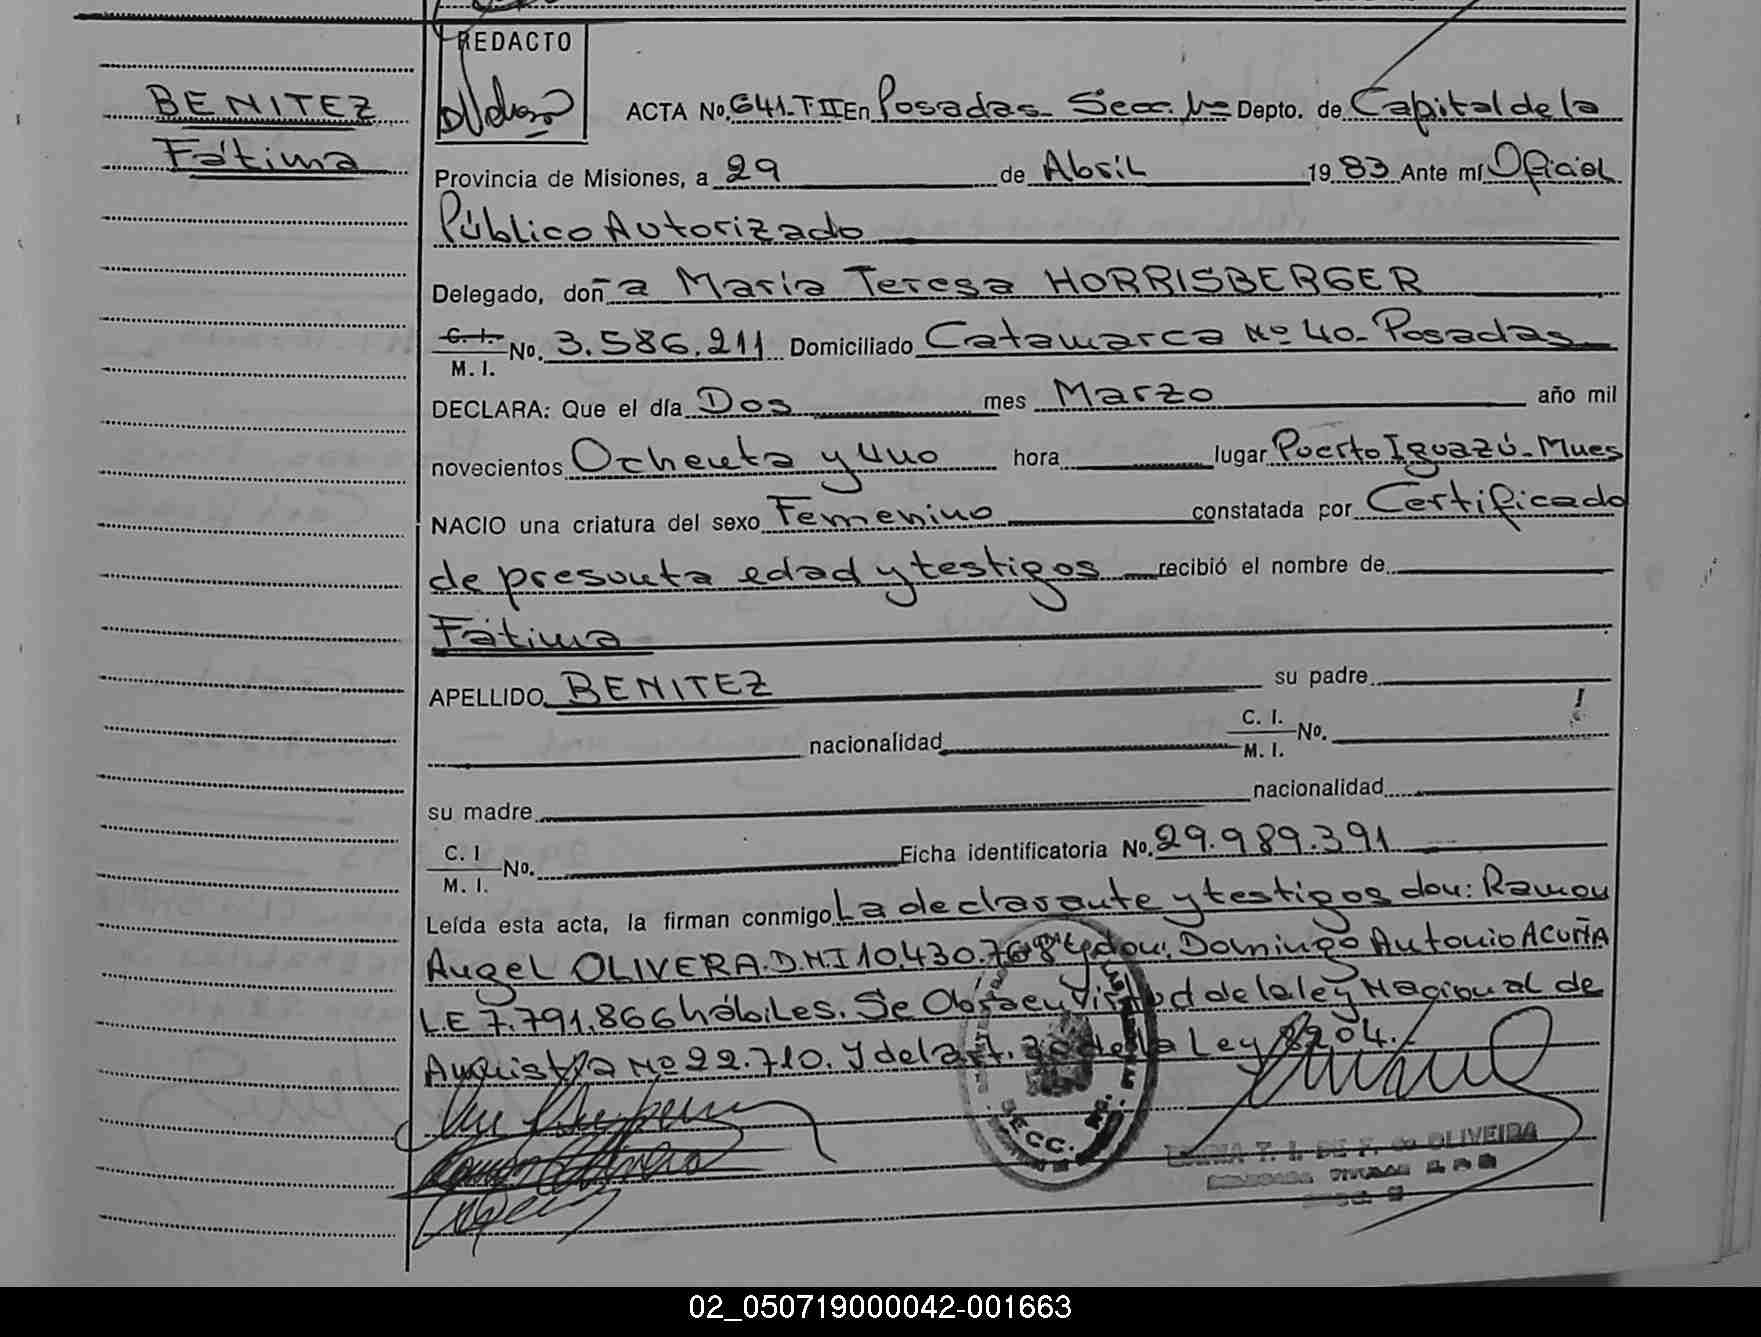 REDACTO
BENITEZ
Fátima
ACTA No. 641-T II En Posadas Secc. 1ª Depto. de Capital de la
Provincia de Misiones, a 29 de Abril 1983 Ante mí Oficial
Público Autorizado
Delegado, doña María Teresa HORRISBERGER
C. I. M. I. No. 3.586.211 Domiciliado Catamarca Nº 40- Posadas
DECLARA: Que el día Dos mes Marzo año mil
novecientos Ochenta y uno hora lugar Puerto Iguazú-Mnes
NACIO una criatura del sexo Femenino constatada por Certificado
de presunta edad y testigos recibió el nombre de
Fátima
APELLIDO BENITEZ su padre
nacionalidad C. I. M. I. No.
su madre nacionalidad
C. I M. I. No. Ficha identificatoria No. 29.989.391
Leída esta acta, la firman conmigo La declarante y testigos don: Ramon
Angel OLIVERA. D.N.I 10.430.768 y don: Domingo Antonio ACUÑA
L.E 7.791.866 hábiles. Se Obra en virtud de la ley Nacional de
Amnistía Nº 22.710. y del art. 30 de la Ley 8204.
SECC.
DE F. de OLIVEIRA
02_050719000042-001663